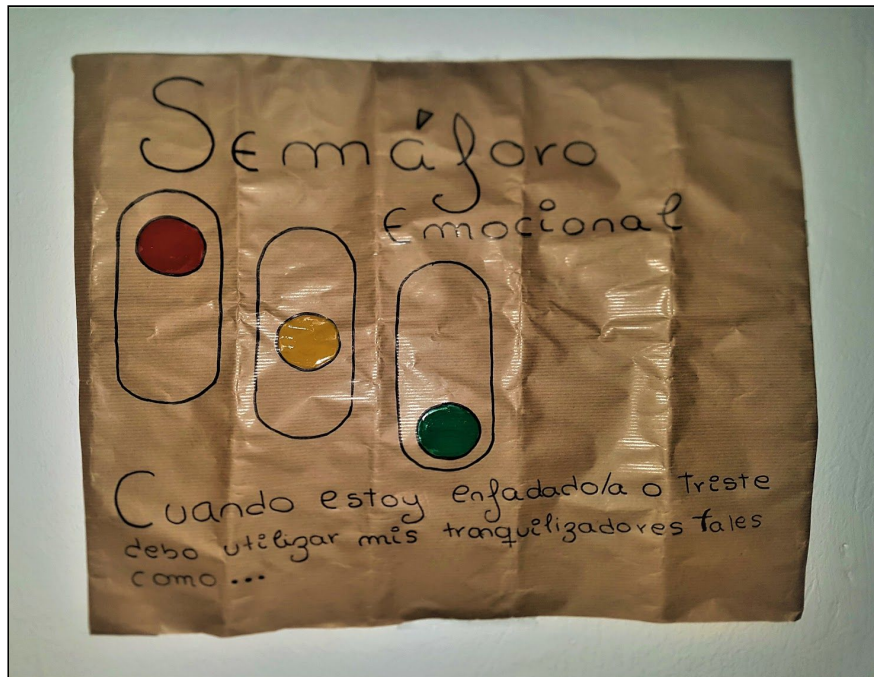 Semáforo
Emocional
Cuando estoy enfadado/a o triste
debo utilizar mis tranquilizadores tales
como...